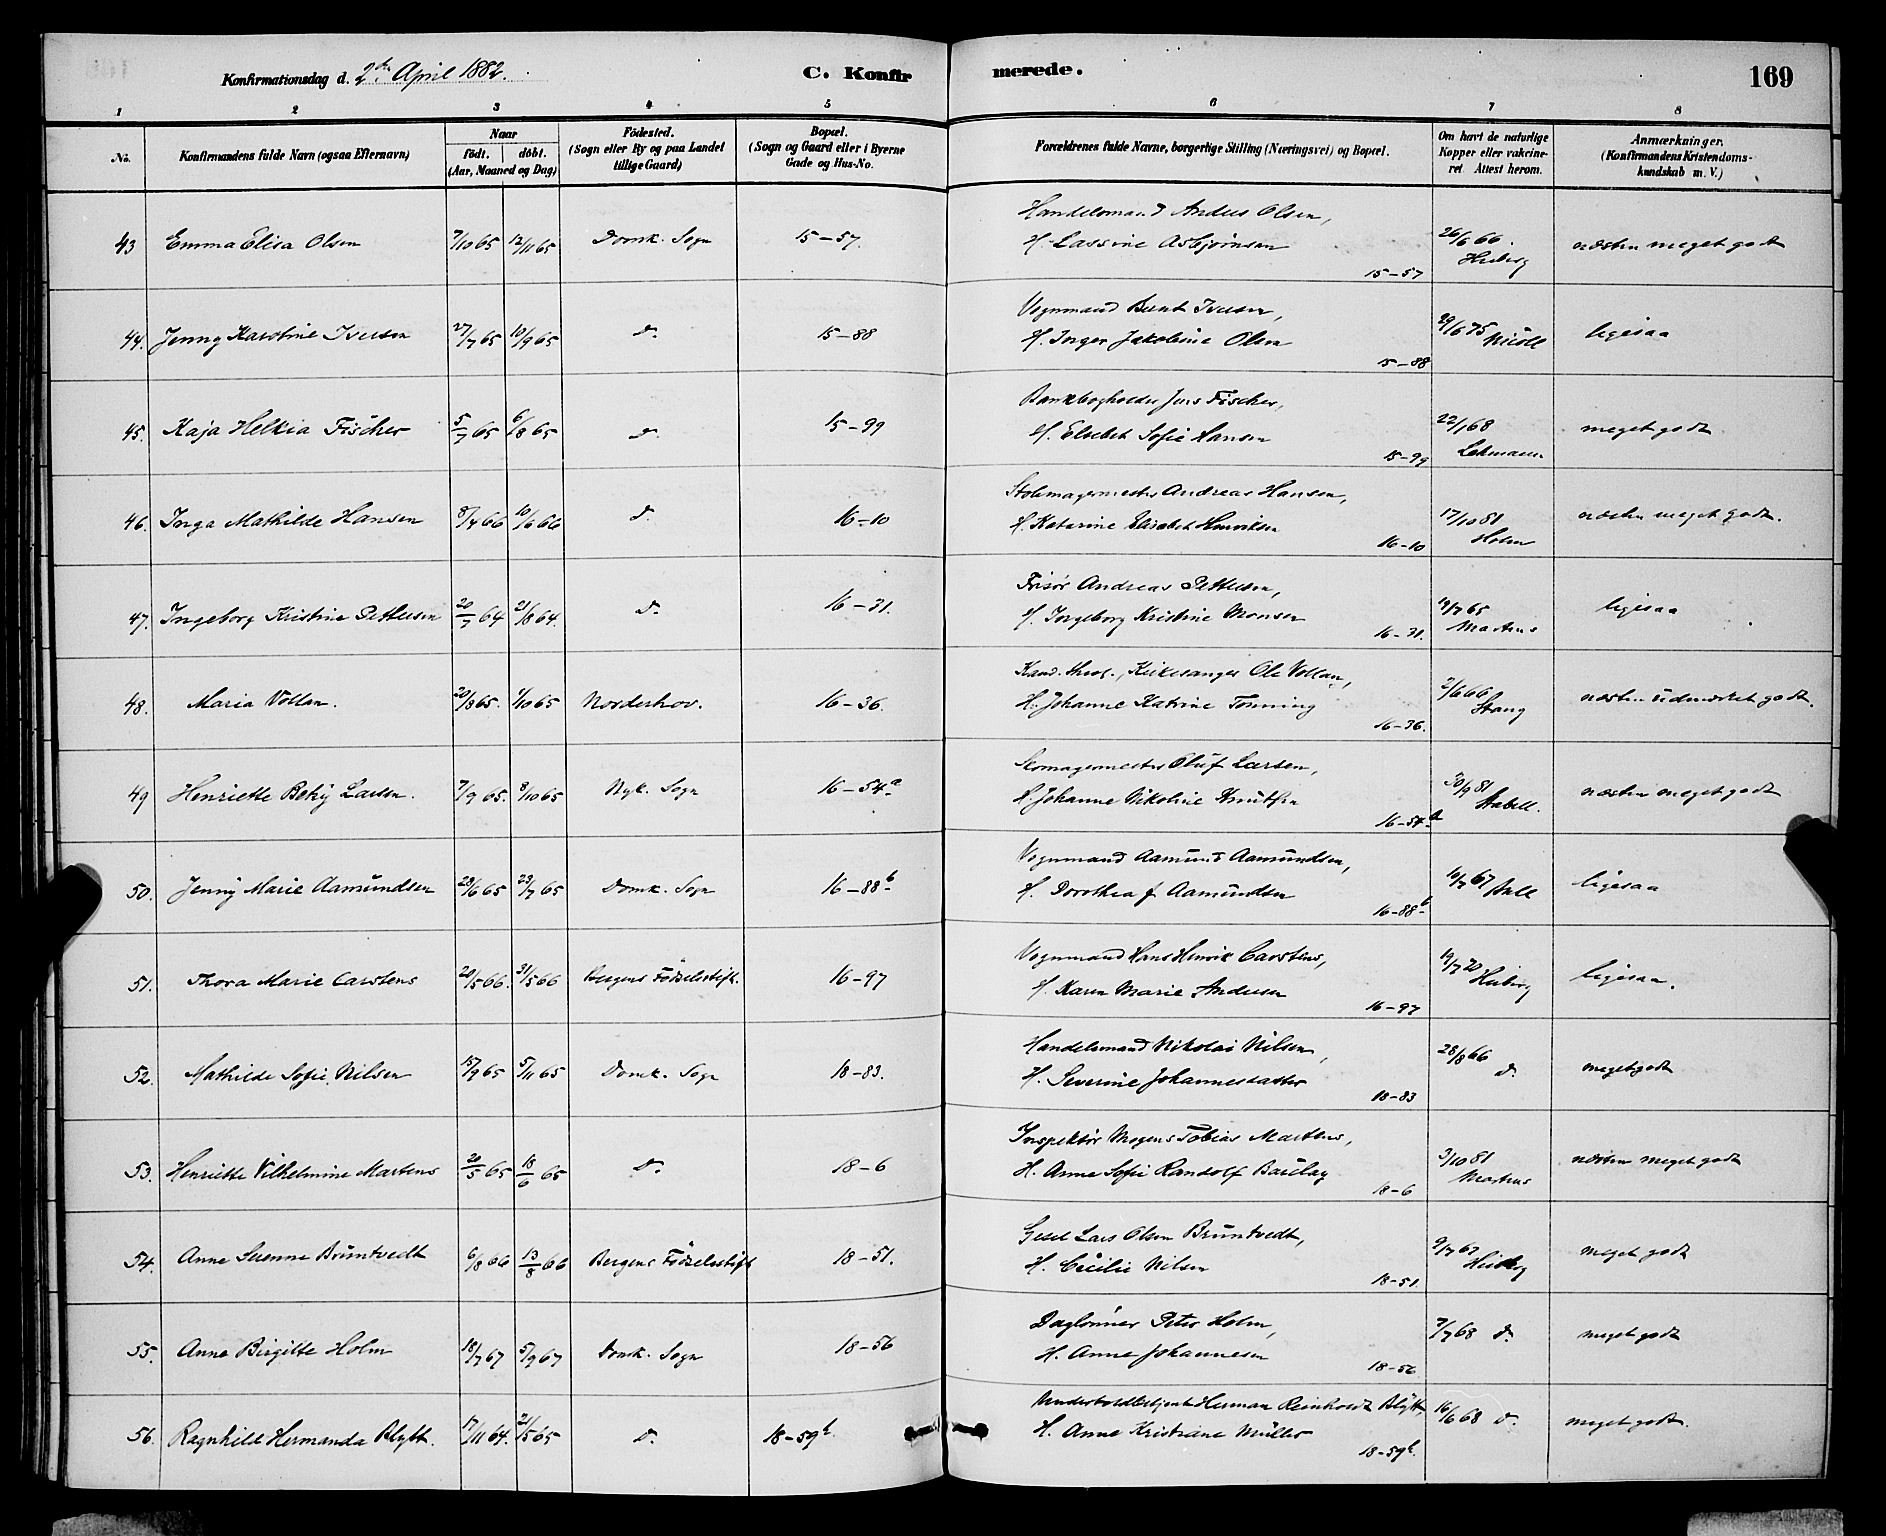 Konfirmationsdag d. 2den April 1882. C. Konfirmerede. 169
1 2 3 4 5 6 7 8
No. Konfirmandens fulde Navn (ogsaa Efternavn) Naar födt. döbt. (Aar, Maaned og Dag) Födested. (Sogn eller By og paa Landet tillige Gaard) Bopæl. (Sogn og Gaard eller i Byerne Gade og Hus-No. Forældrenes fulde Navne, borgerlige Stilling (Næringsvei) og Bopæl. Om havt de naturlige Kopper eller vakcineret Attest herom. Anmærkninger. (Konfirmandens Kristendomskundskab m. V.)
43 Emma Elisa Olsen 7/10 65 12/11 65 Domk. Sogn 15-57. Handelsmand Anders Olsen,
H. Lassine Asbjørnsen 15-57 26/6 66. Heiberg næsten meget godt
44. Jenny Karoline Iversen 27/7 65 10/9 65 do 15-88 Vognmand Bernt Iversen,
H. Inger Jakobine Olsen 15-88 29/6 75 Nicoll ligesaa
45. Kaja Helkia Fischer 5/7 65 6/8 65 do 15-99 Bankbogholder Jens Fischer,
H. Elsebet Sofie Hansen 15-99 22/1 68 Lehmann meget godt
46. Inga Mathilde Hansen 8/4 66 10/6 66 do 16-10 Stolemagermester Andreas Hansen,
H. Katarine Elisabet Henriksen 16-10 17/10 81 Holm næsten meget godt.
47. Ingeborg Kristine Pettersen 20/7 64 21/8 64. do 16-31. Frisør Andreas Pettersen,
H. Ingeborg Kristine Monsen 16-31. 19/7 65 Martens ligesaa
48. Maria Vollan. 20/8 65. 1/10 65 Norderhov. 16-36. Kand. theol., Kirkesanger Ole Vollan,
H. Johanne Katrine Tonning 16-36. 2/6 66 Stang næsten udmærket godt.
49 Henriette Betzy Larsen. 7/9 65. 8/10 65 Nyk. Sogn 16-54a Skomagermester Oluf Larsen,
H. Johanne Nikoline Knutsen 16-54a 30/9 81 Stabell. næsten meget godt
50. Jenny Marie Aamundsen 28/6 65 23/7 65 Domk. Sogn 16-88b Vognmand Aamund Aamundsen,
H. Dorothea f. Aamundsen 16-88b 10/7 67 ligesaa
51. Thora Marie Carstens 20/5 66. 31/5 66 Bergens Fødselsstift. 16-97 Vognmand Hans Henrik Carstens,
H. Karen Marie Andersen 16-97 19/7 70 Heiberg ligesaa.
52. Mathilde Sofie Nilsen 15/9 65 5/11 65 Domk. Sogn 18-83. Handelsmand Nikolai Nilsen,
H. Severine Johannesdatter 18-83 28/8 66 do meget godt
53. Henriette Vilhelmine Martens 20/5 65 18/6 65 do 18-6 Inspektør Mogens Tobias Martens,
H. Anne Sofie Randolf Barclay 18-6 3/10 81 Martens næsten meget godt
54. Anne Serenne Bruntvedt 6/8 66 13/8 66 Bergens Fødselsstift 18-51. Gesel Lars Olsen Bruntvedt,
H. Cecilie Nilsen 18-51. 9/7 67 Heiberg meget godt
55. Anne Birgitte Holm 18/7 67 5/9 67 Domk. Sogn 18-56 Daglønner Peter Holm,
H. Anne Johannesen 18-56 7/7 68 do meget godt
56. Ragnhild Hermanda Blytt. 17/11 64. 21/5 65 do 18-59b Herman Reinholdt Blytt,
H. Anne Kristiane Müller 18-59b. 16/6 68 do meget godt.